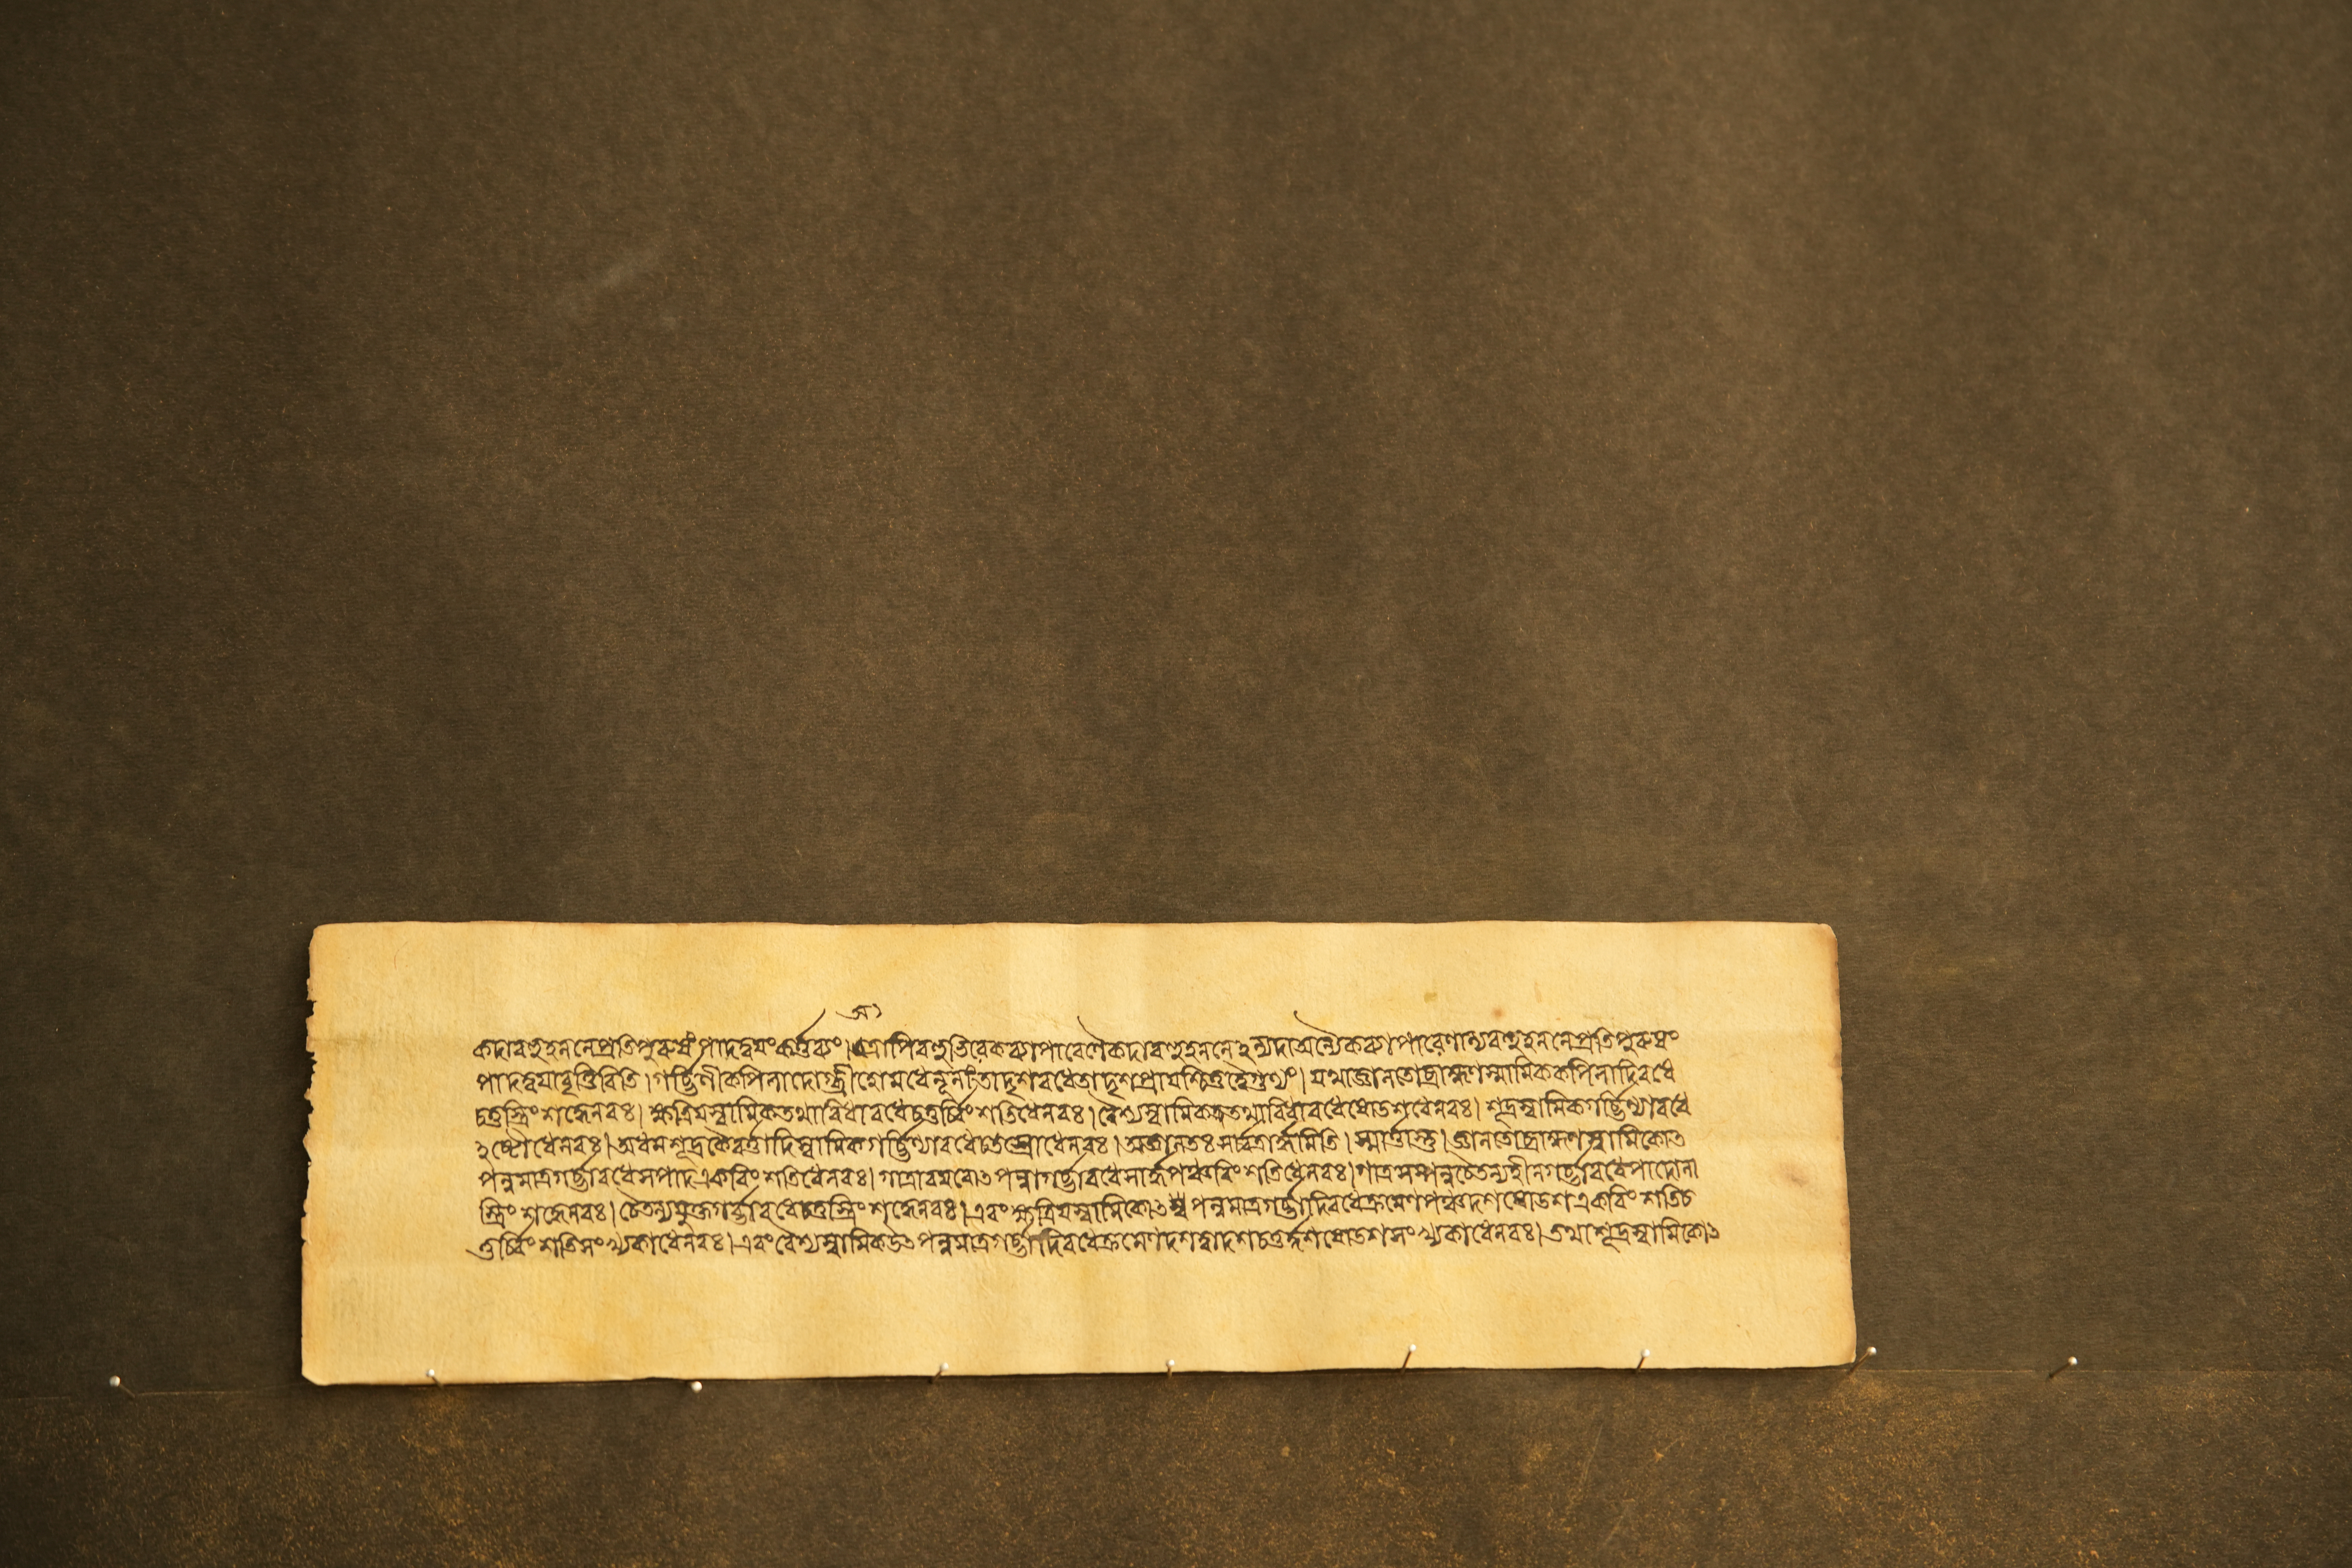 অ
কদাবহুহননেপ্রতিপুরুষংপাদদ্বয়ংকর্ত্তব্যং।তত্রাপিবহুভিরেকব্যাপারেণৈকদাবহুহননেঽন্যদাঅন্যৈকব্যাপারেণান্যবহুহননেপ্রতিপুরুষং
পাদদ্বয়াবৃত্তিরিতি।গর্ব্ভিণীকপিলাদোগ্ধ্রীহোমধেনূনাংতাদৃশবধেতাদৃশপ্রায়শ্চিত্তদ্বৈগুণ্যং।যথাজ্ঞানতোব্রাহ্মণস্বামিককপিলাদিবধে
চতুস্ত্রিংশদ্ধেনবঃ।ক্ষত্রিয়স্বামিকতথাবিধাবধেচতুর্ব্বিংশতিধেনবঃ।বৈশ্যস্বামিকতথাবিধাবধেষোডশধেনবঃ।শূদ্রস্বামিকগর্ব্ভিণ্যাবধে
ঽষ্টৌধেনবঃ।অধমশূদ্রকৈবর্ত্তাদিস্বামিকগর্ব্ভিণ্যাবধেচতস্রোধেনবঃ।অজ্ঞানতঃসর্ব্বত্রার্দ্ধমিতি।স্মার্ত্তাস্তু।জ্ঞানতোব্রাহ্মণস্বামিকোৎ
পন্নমাত্রগর্ব্ভাবধেসপাদএকবিংশতিধেনবঃ।গাত্রাবয়বোৎপন্নাগর্ব্ভাবধেসার্দ্ধপঞ্চবিংশতিধেনবঃ।গাত্রসম্পন্নচৈতন্যহীনগর্ব্ভাবধেপাদোনা
স্ত্রিংশদ্ধেনবঃ।চৈতন্যযুক্তগর্ব্ভাবধেচতুস্ত্রিংশদ্ধেনবঃ।এবংক্ষত্রিয়স্বামিকোৎপন্নমাত্রগর্ব্ভাদিবধেক্রমেণপঞ্চদশষোডশএকবিংশতিচ
তুর্ব্বিংশতিসংখ্যকাধেনবঃ।এবংবৈশ্যস্বামিকউৎপন্নমাত্রগর্ব্ভাদিবধেক্রমেণদশদ্বাদশচতুর্দ্দশষোডশসংখ্যকাধেনবঃ।তথাশূদ্রস্বামিকোৎ